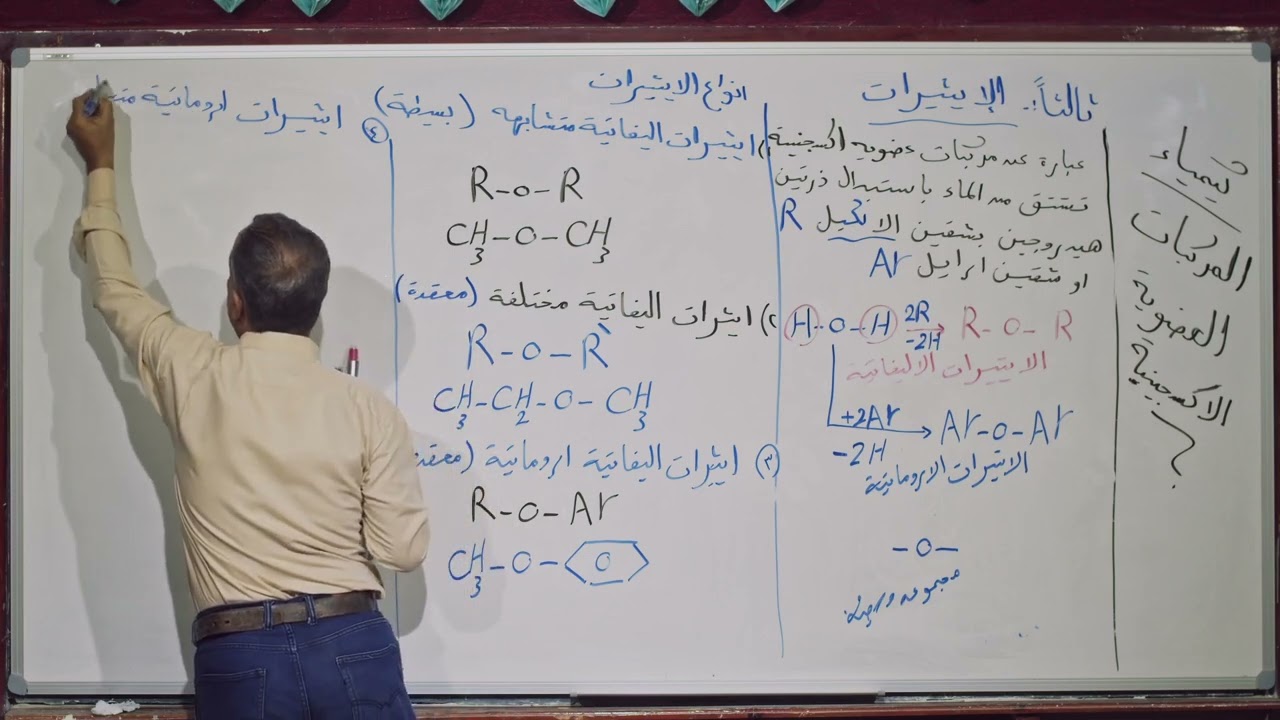 كيمياء
المركبات
العضوية
الاكسجينية
ثالثاً: الايثيرات
عبارة عن مركبات عضوية اكسجينية
تشتق من الماء باستبدال ذرتين
هيدروجين بشقين الالكيل R
او شقين ارايل Ar
H-O-H 2R -2H → R-O-R
الايثيرات الاليفاتية
+2Ar -2H → Ar-O-Ar
الايثيرات الاروماتية
-O-
مجموعة
انواع الايثيرات
١) ايثيرات اليفاتية متشابهه (بسيطة)
R-O-R
CH3-O-CH3
٢) ايثرات اليفاتية مختلفة (معقدة)
R-O-R`
CH3-CH2-O-CH3
٣ ايثرات اليفاتية اروماتية (معقد
R-O-Ar
CH3-O-
٤ ايثيرات اروماتية